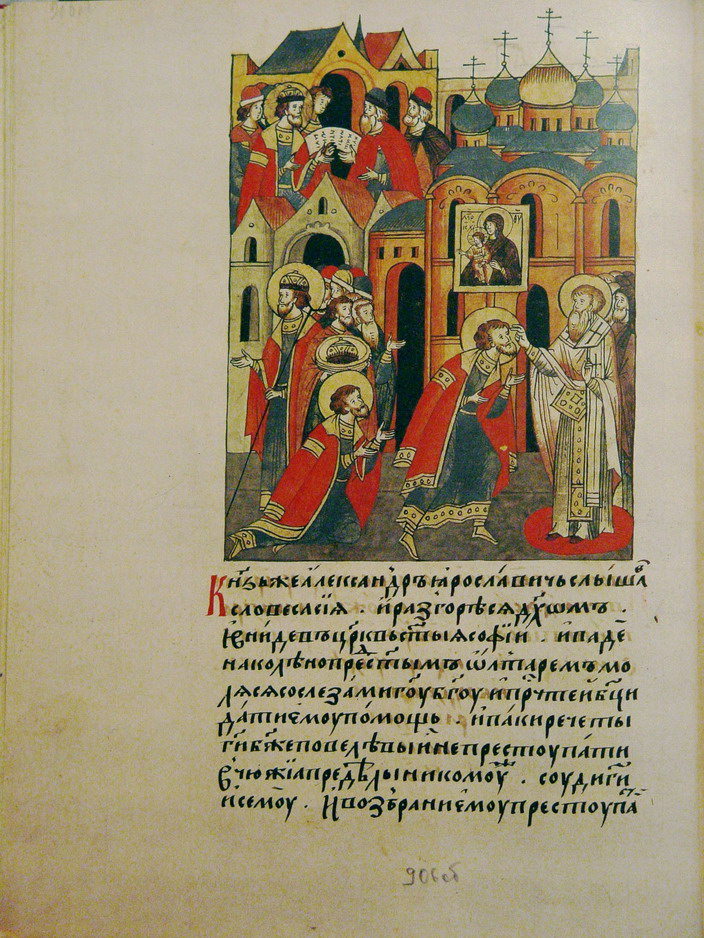 Кн҃зь же алеѯандръ ꙗрославичь слышав
словеса сїꙗ . и разгорѣсѧ дх҃омъ .
ѿниде въ цр҃квь ст҃ыꙗ софїи . и паде
на колѣно прⷣестымъ ѡлтаремъ мо
лѧсѧ со слезами гоу бг҃оу и прч҃тей бц҃и
дати емоу помощь . и паки рече ты
ги҃ бж҃е повелѣвый не престоупати
чюжїа предѣлы никомоу . соуди ги҃
и семоу . и возбрани емоу престоупа
906об